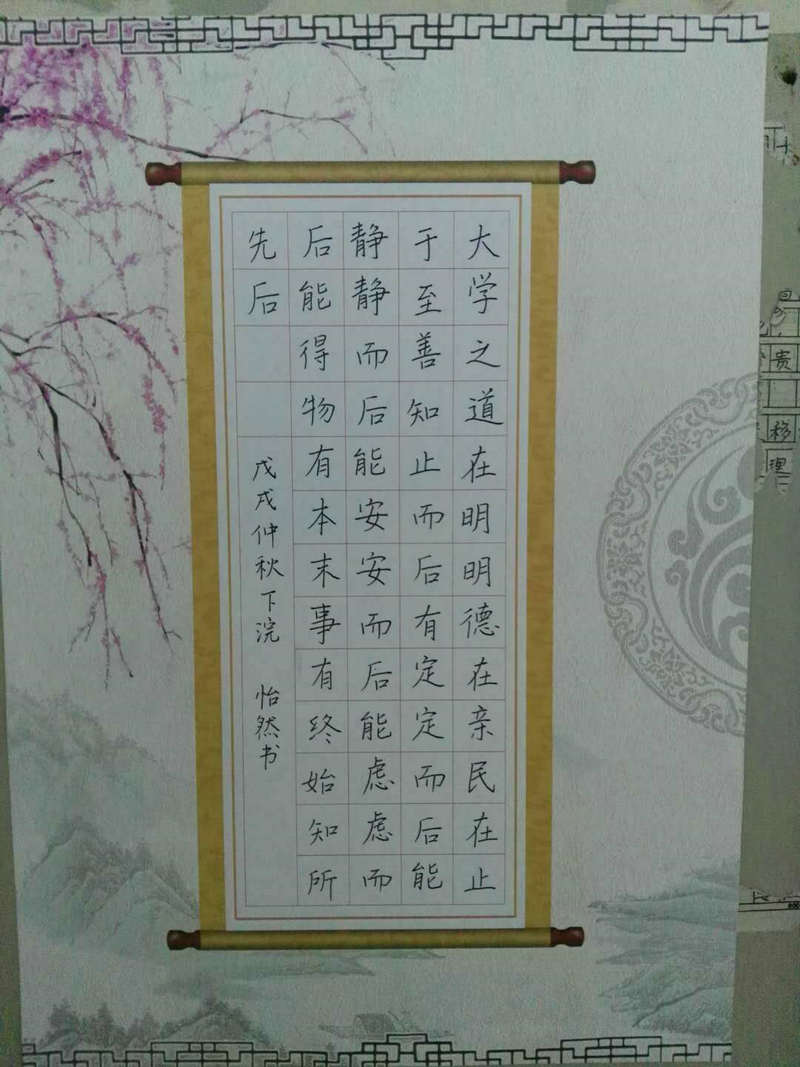 大学之道在明明德在亲民在止
于至善知止而后有定定而后能
静静而后能安安而后能虑虑而
后能得物有本末事有终始知所
先后
戊戌仲秋下浣 怡然书
贵
移
理